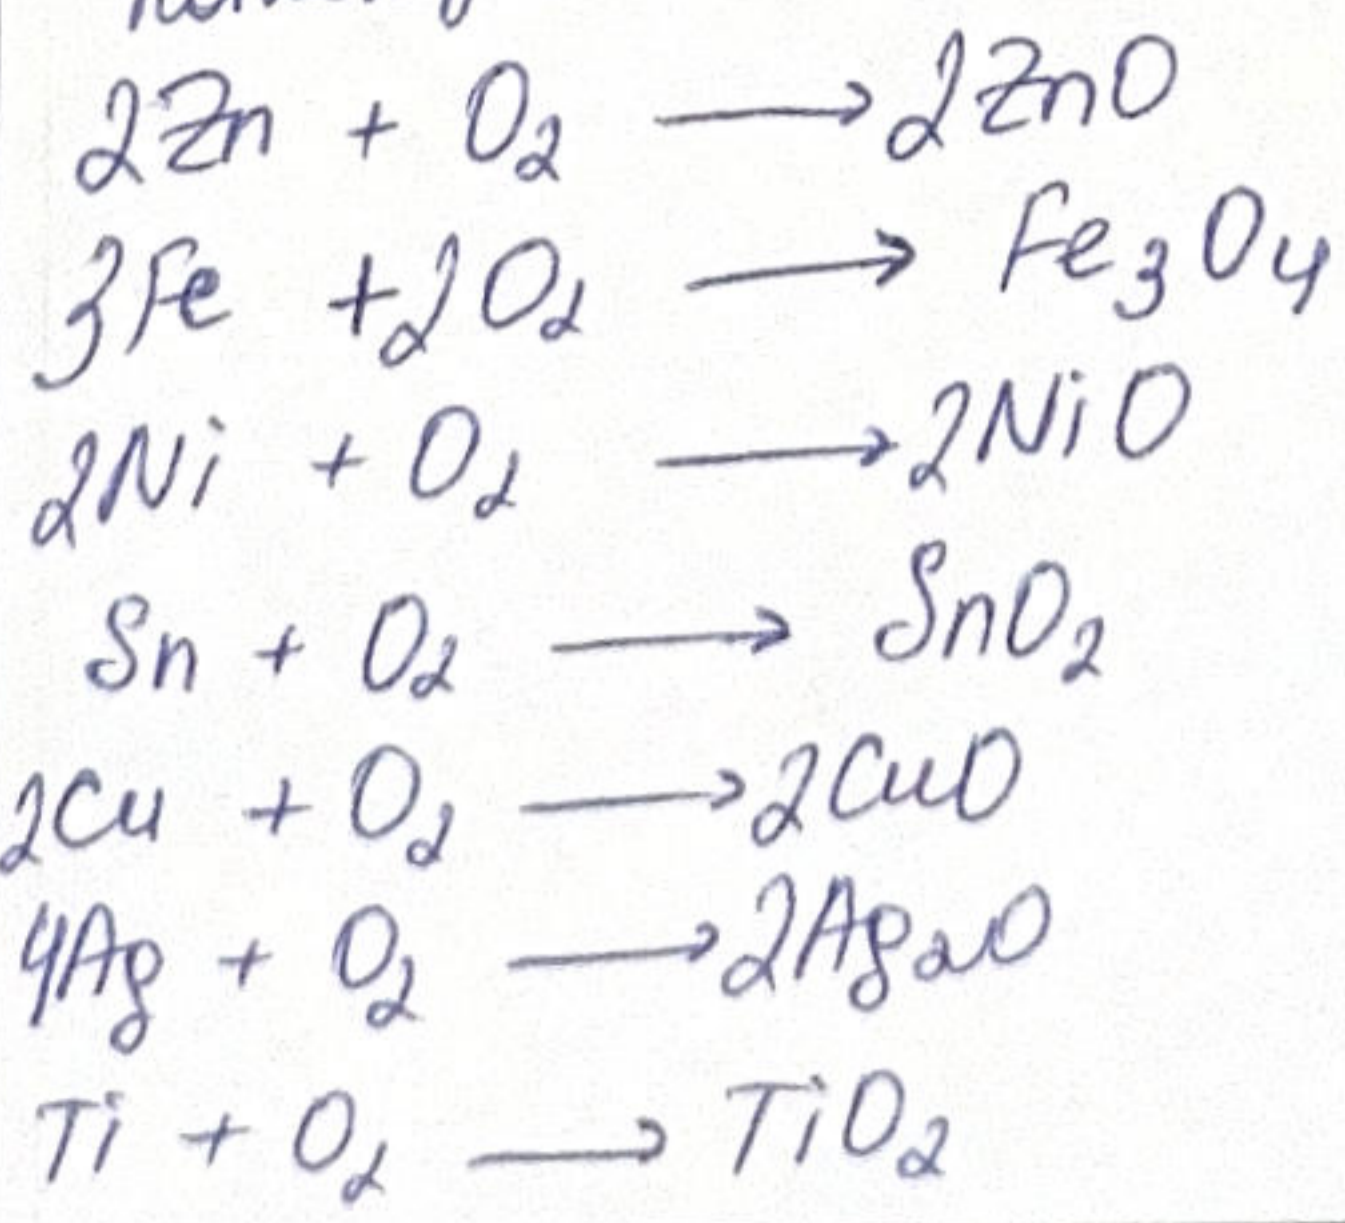 2Zn + O₂ → 2ZnO
3Fe + 2O₂ → Fe₃O₄
2Ni + O₂ → 2NiO
Sn + O₂ → SnO₂
2Cu + O₂ → 2CuO
4Ag + O₂ → 2Ag₂O
Ti + O₂ → TiO₂